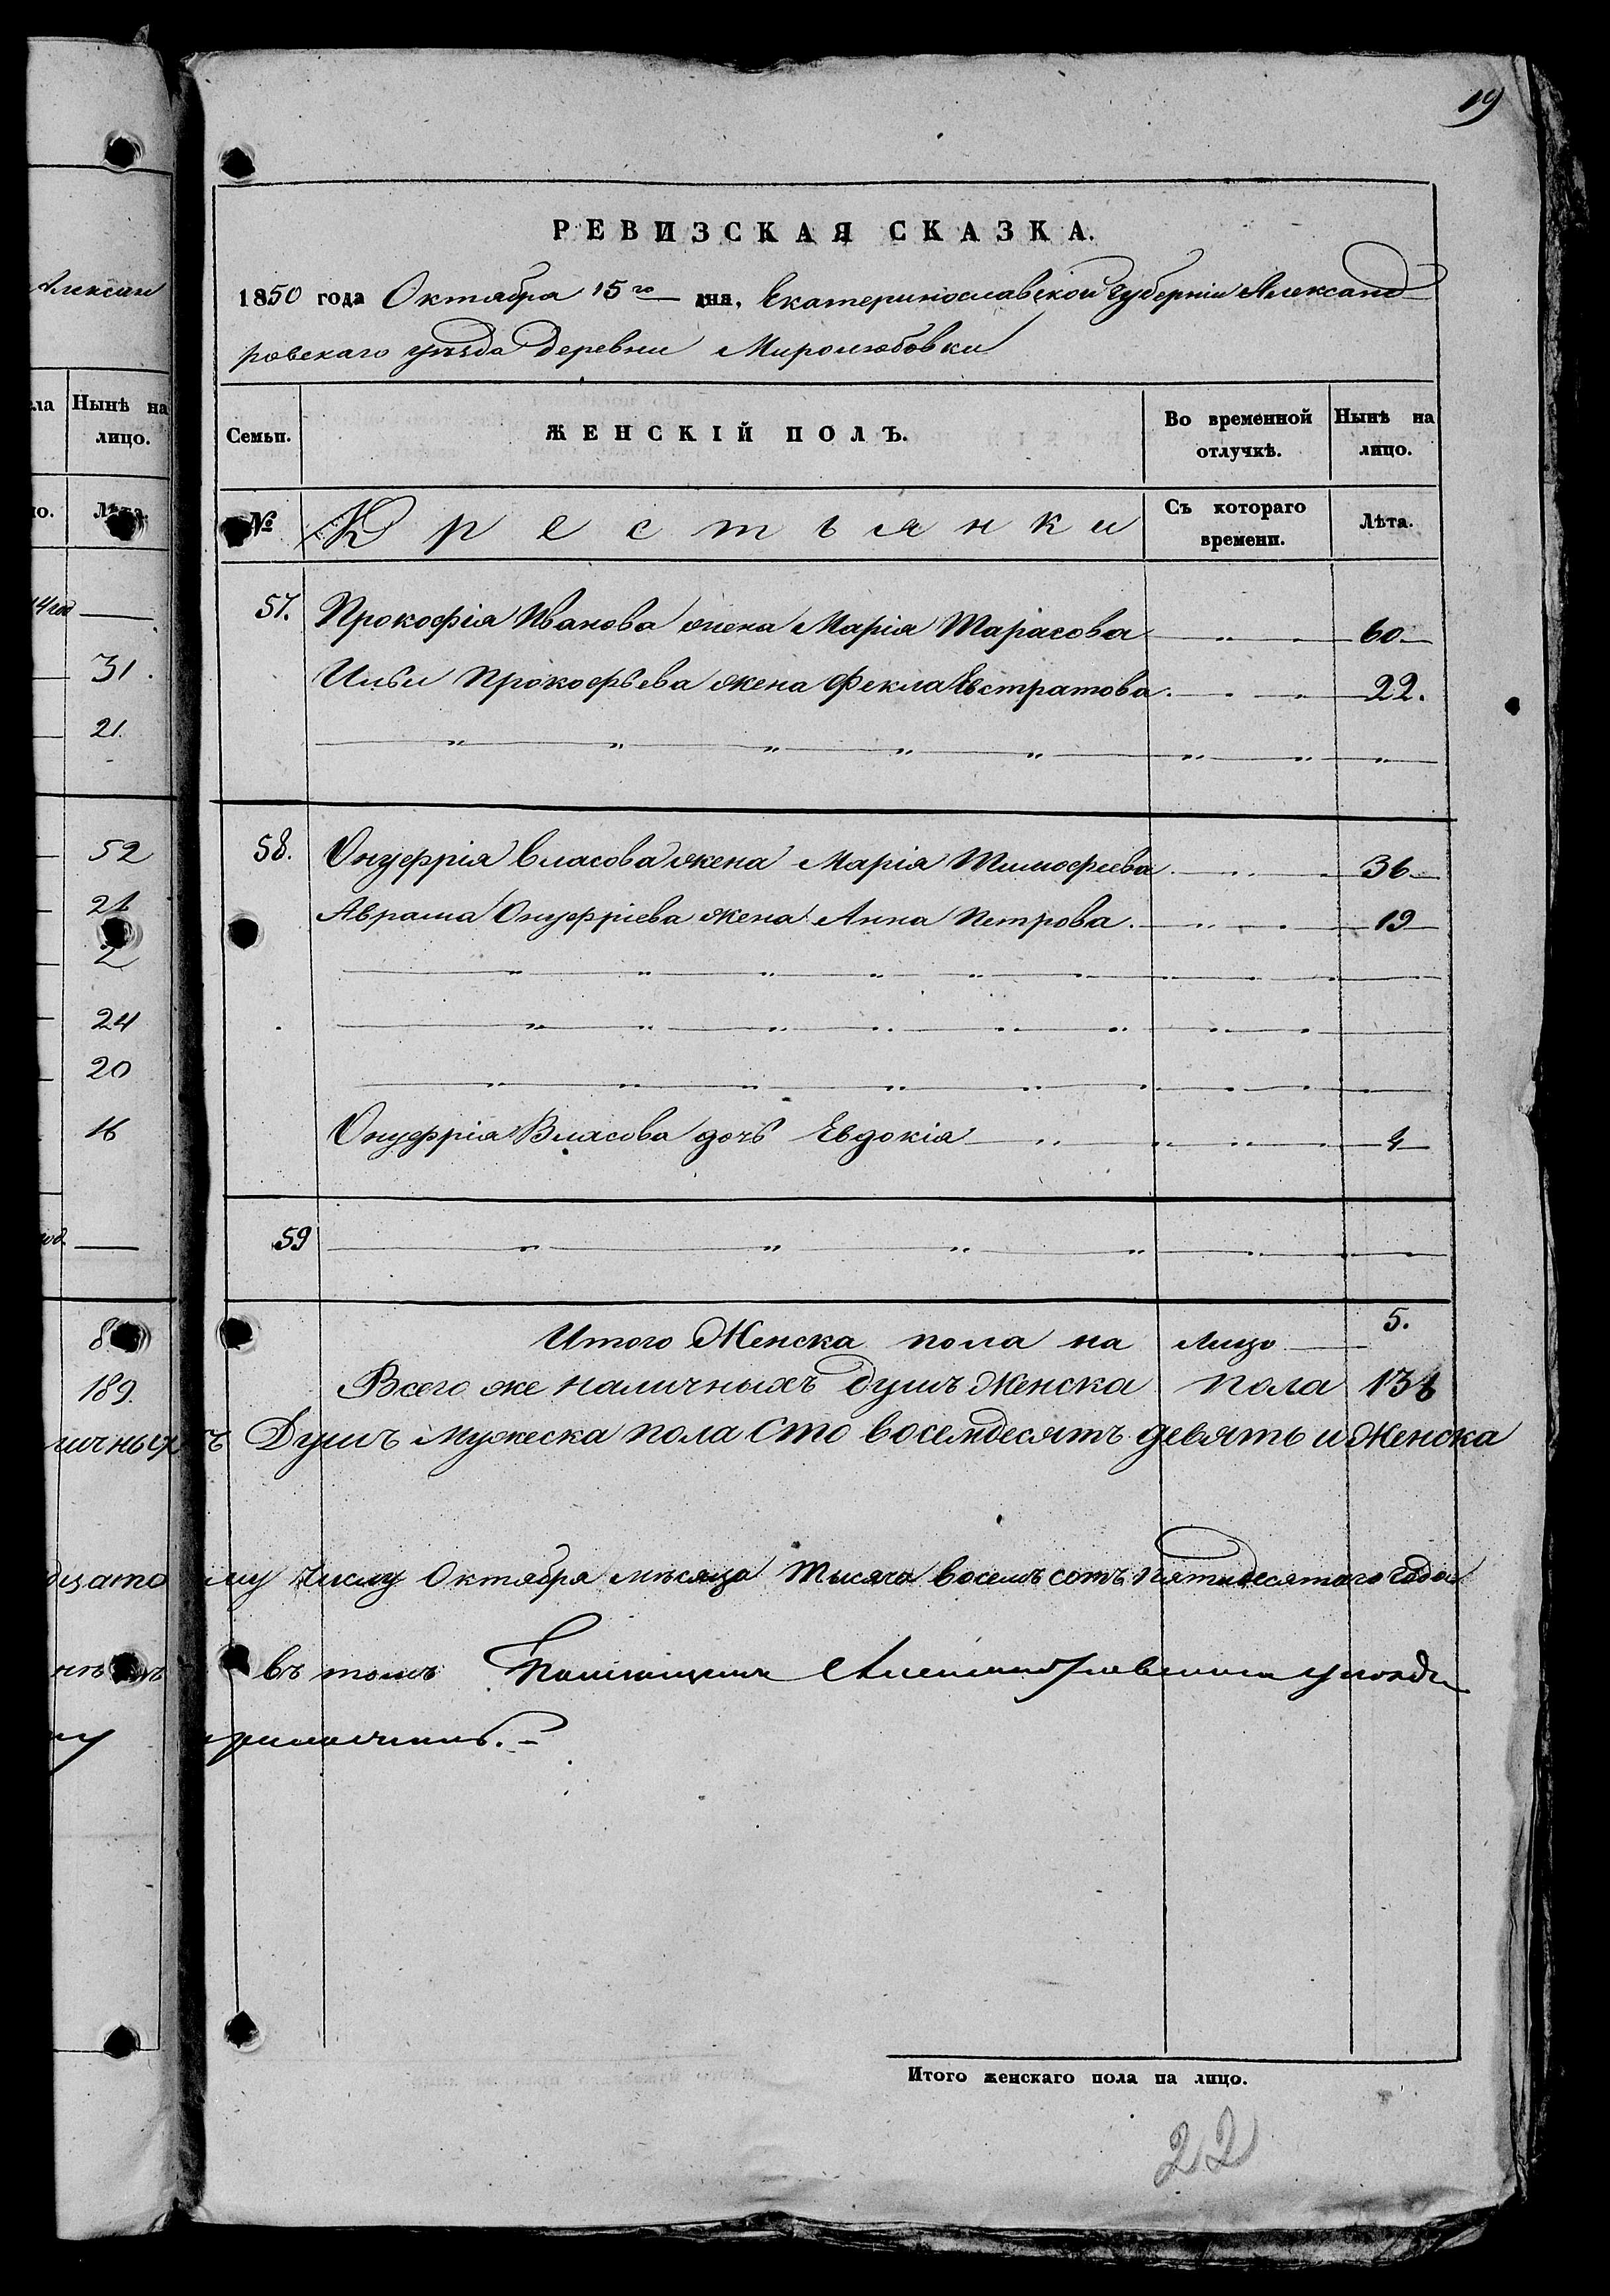 19
РЕВИЗСКАЯ СКАЗКА.
1850 года Октября 15го дня, Екатеринославской Губерніи Александ-
ровскаго уѣзда деревни Миролюбовки
Семьи. ЖЕНСКІЙ ПОЛЪ. Во временной отлучкѣ. Нынѣ на лицо.
№ Крестьянки Съ котораго времени. Лѣта.
57. Прокофія Иванова жена Марія Тарасова 60
Ильи Прокофьева жена Фекла Евстратова 22.
58. Онуфрія Власова жена Марія Тимофеева 36
Аврама Онуфріева жена Анна Петрова 19
Онуфрія Власова дочь Евдокія 4
59
Итого Женска пола на лицо 5.
Всего же наличныхъ душъ Женска пола
ичныхъ Душъ мужеска пола Сто восемдесятъ девять и Женска
му числу Октября мѣсяца тысяча восемь сотъ пятидесятаго года
въ томъ
Итого женскаго пола на лицо.
22
Алексан
ла Нынѣ на лицо.
Лѣта.
31.
21.
52
2
24
20
16
189.